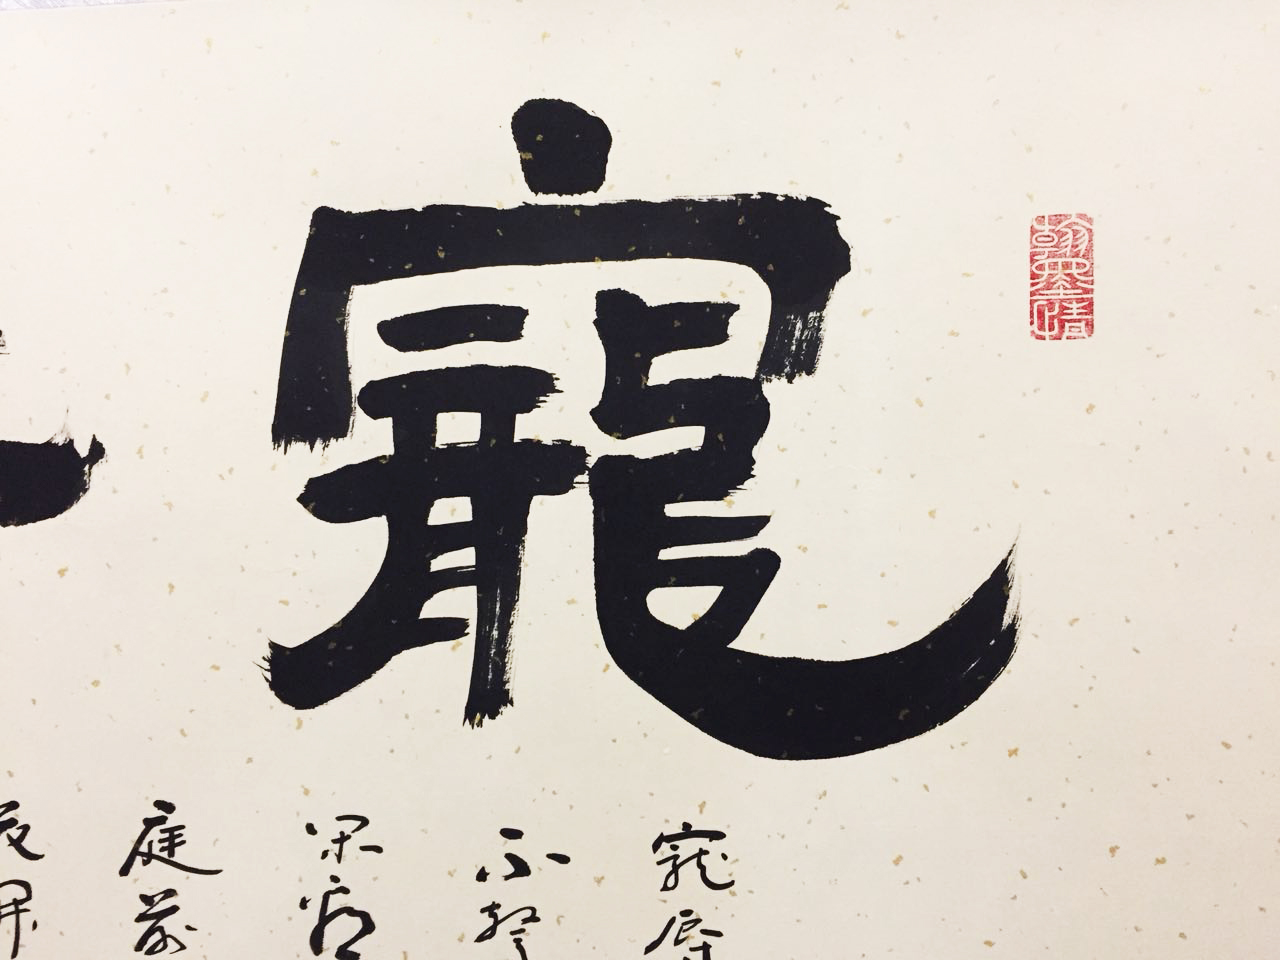 寵
翰墨情
寵辱
不驚
閑看
庭前
花開